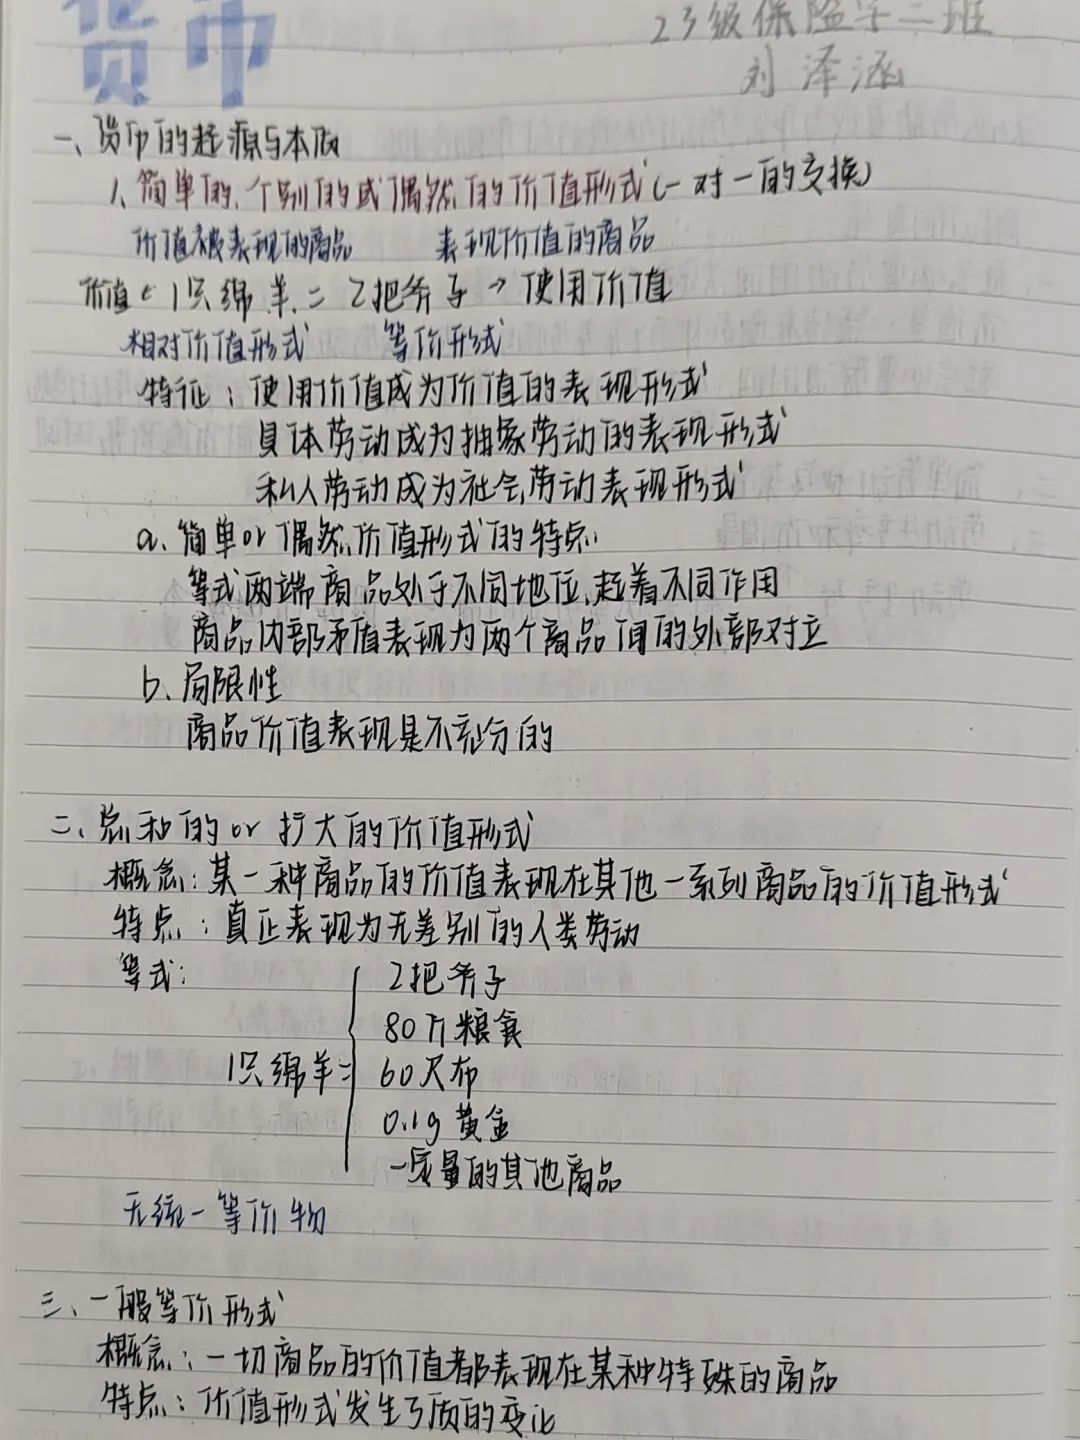 货币
23级保险学二班
刘泽涵
一、货币的起源与本质
1、简单的、个别的或偶然的价值形式(一对一的交换)
价值被表现的商品 表现价值的商品
价值←1只绵羊=2把斧子→使用价值
相对价值形式 等价形式
特征:使用价值成为价值的表现形式
具体劳动成为抽象劳动的表现形式
私人劳动成为社会劳动表现形式
a、简单or偶然价值形式的特点:
等式两端商品处于不同地位,起着不同作用
商品内部矛盾表现为两个商品间的外部对立
b、局限性
商品价值表现是不充分的
二、总和的or扩大的价值形式
概念:某一种商品的价值表现在其他一系列商品的价值形式
特点:真正表现为无差别的人类劳动
等式:
2把斧子
80斤粮食
1只绵羊= 60尺布
0.1g黄金
一定量的其他商品
无统一等价物
三、一般等价形式
概念:一切商品的价值都表现在某种特殊的商品
特点:价值形式发生了质的变化